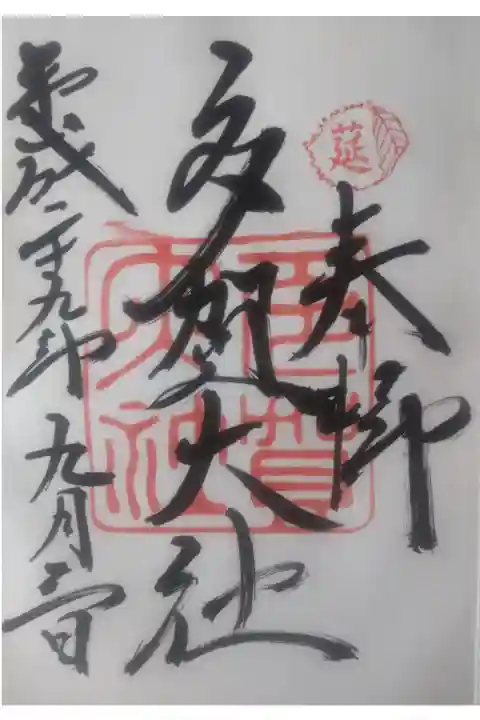 莚
奉拝
多賀大社
多賀大社
平成二十九年九月三日